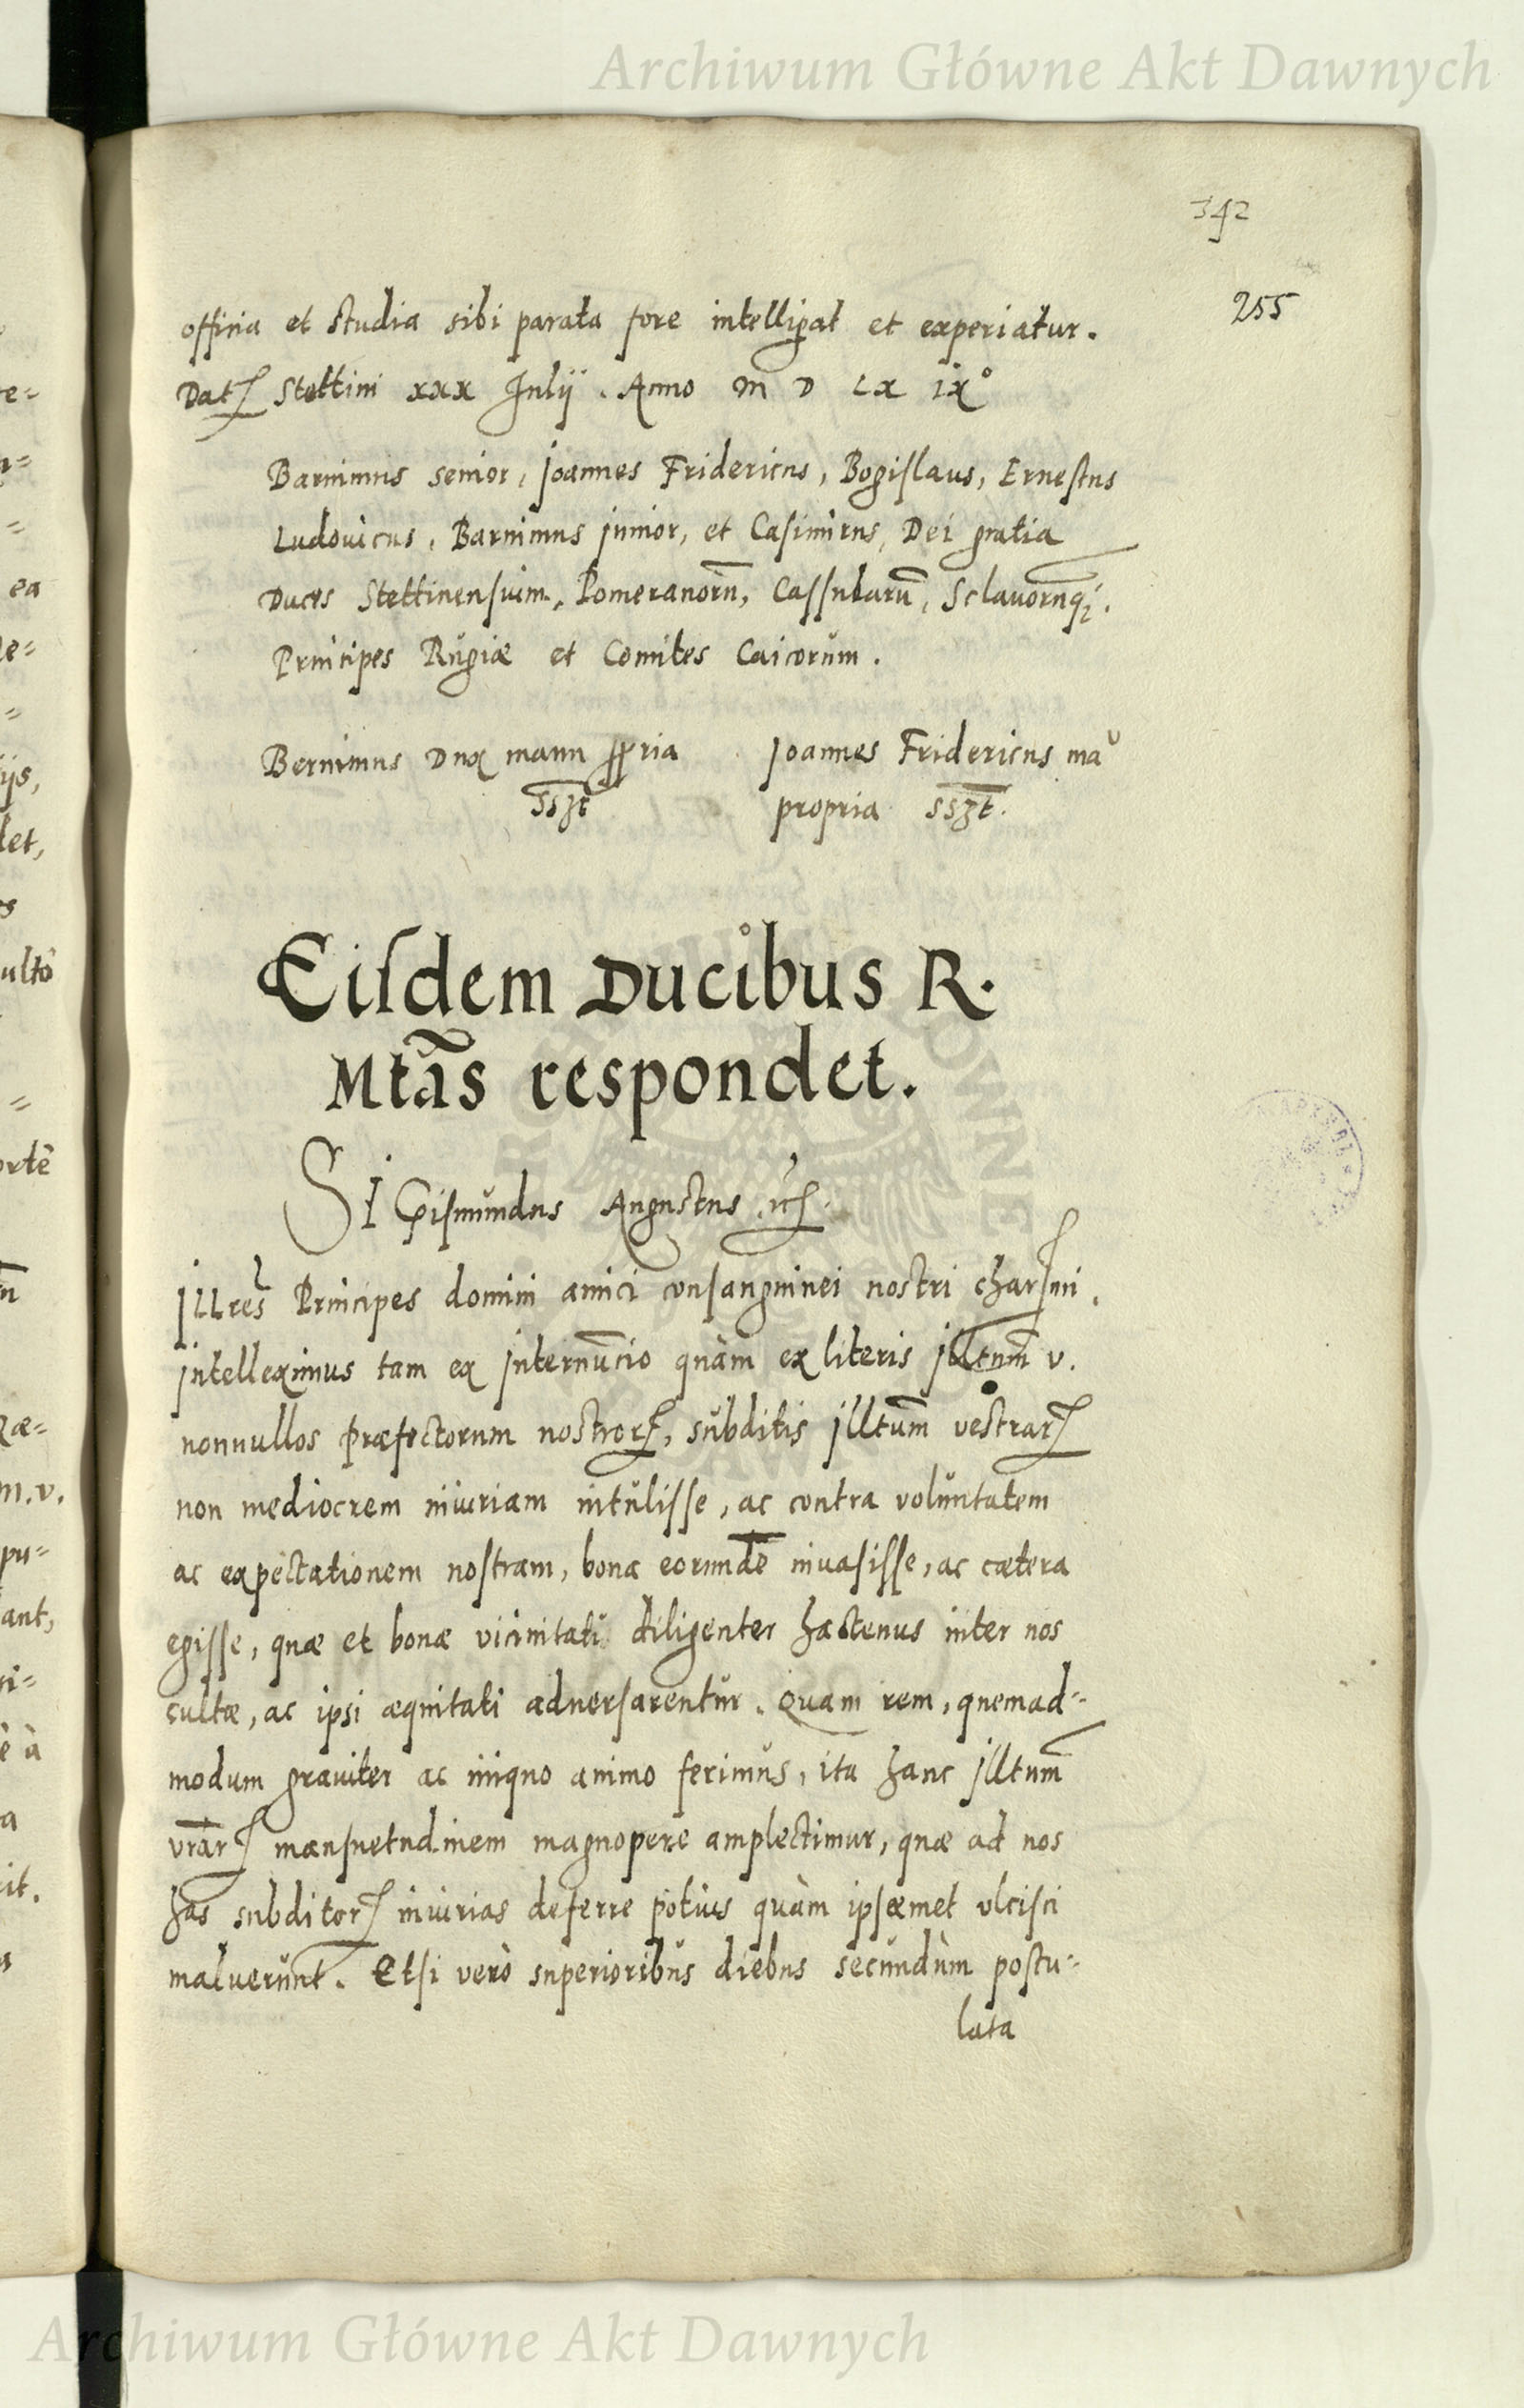 Archiwum Główne Akt Dawnych
342
255
officia et studia sibi parata fore intelligat et experiatur.
Datꝭ Stettini xxx Julij. Anno M D LX IX°
Barnimus senior, Joannes Fridericus, Bogislaus, Ernestus
Ludouicus, Barnimus junior, et Casimirus, Dei gratia
Duces Stettinensium, Pomeranorū, Cassubarū, Sclauorūq;.
Principes Rugiæ et Comites Caicorum.
Bernimus Dux manu ꝓpria
sszt
Joannes Fridericus maᵘ
propria sszt.
Eisdem Ducibus R.
Mtãs respondet.
SIGismundus Augustus ꝛcꝭ.
Jllres Principes domini amici consanguinei nostri charꝭmi.
Jntelleximus tam ex Jnternuncio quàm ex literis Jlltum̄ v.
nonnullos præfectorum nostrorꝭ, subditis Jlltum̄ vestrarꝭ
non mediocrem iniuriam intulisse, ac contra voluntatem
ac expectationem nostram, bona eorundē inuasisse, ac cætera
egisse, quæ et bonæ vicinitati diligenter hactenus inter nos
cultæ, ac ipsi æquitati aduersarentur. Quam rem, quemad=
modum grauiter ac iniquo animo ferimus, ita hanc Jlltum̄
vrārꝭ mansuetudinem magnopere amplectimur, quæ ad nos
has subditorꝭ iniurias deferre potius quàm ipsæmet vlcisci
maluerunt. Etsi verò superioribus diebus secundùm postu=
lata
Archiwum Główne Akt Dawnych